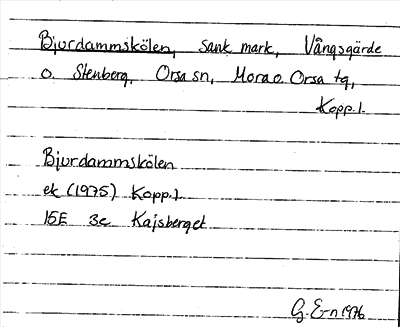 Bjurdammskölen, sank mark, Vångsgärde
o. Stenberg, Orsa sn, Mora o. Orsa tg,
Kopp. l.
Bjurdammskölen
ek (1975) Kopp. l
15E 3c Kajsberget
G. E-n 1976